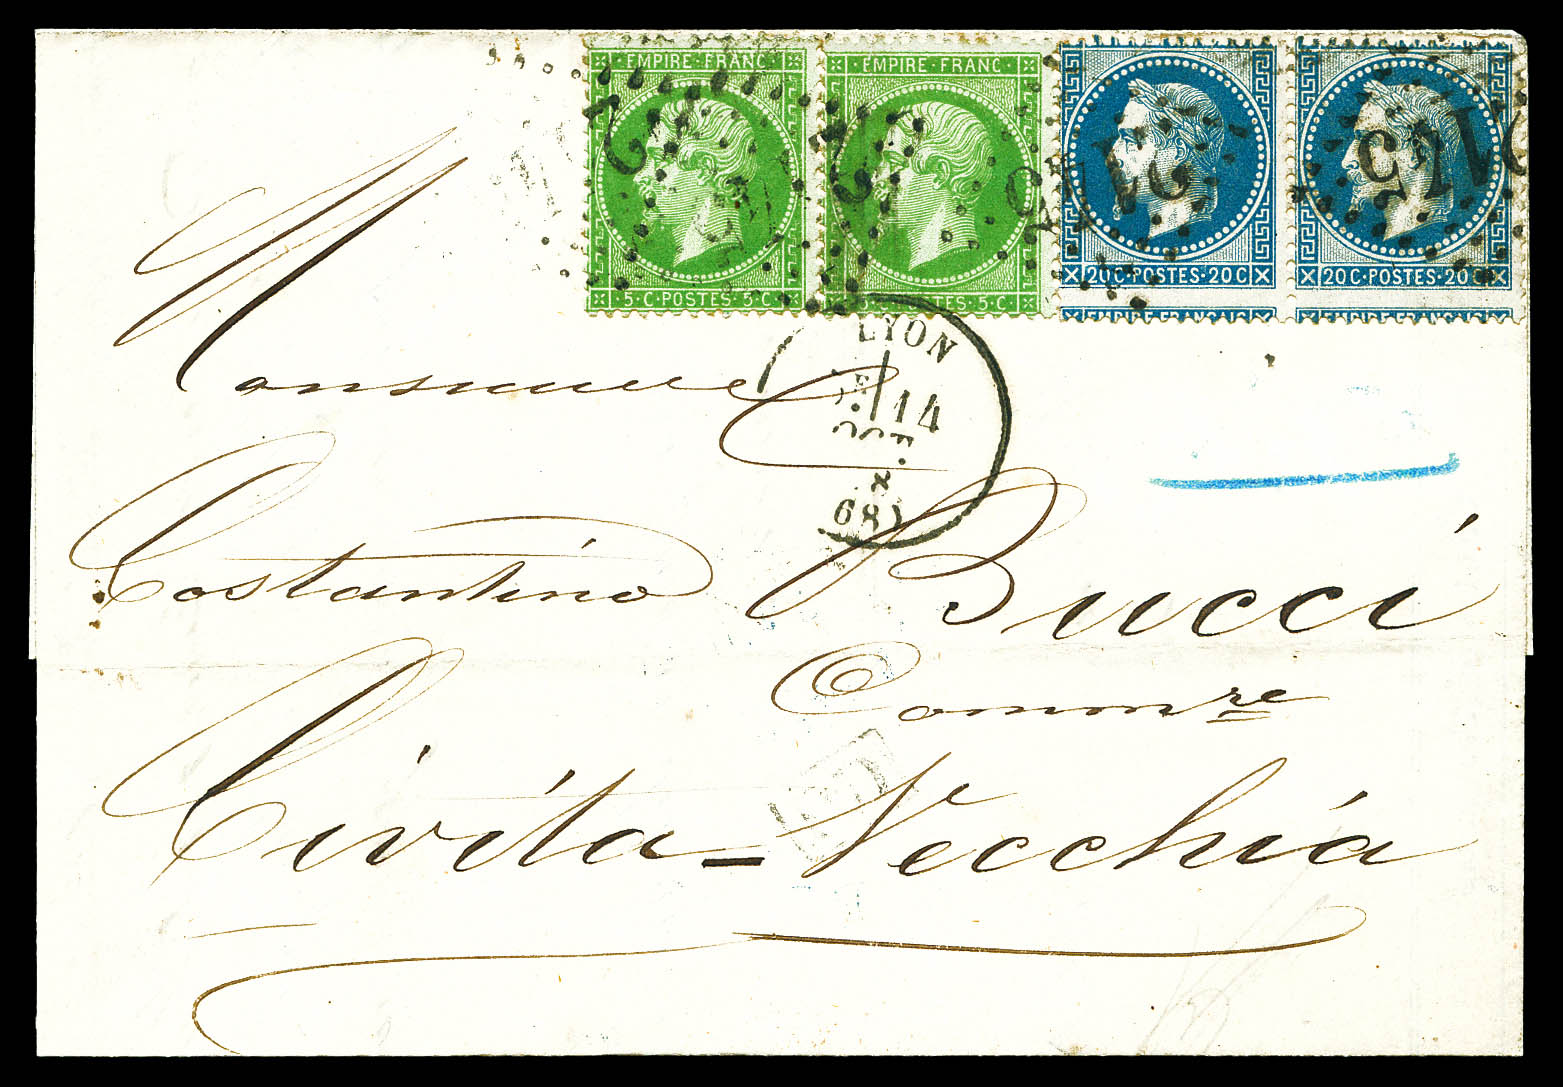 EMPIRE · FRANC · EMPIRE · FRANC
5 · C · POSTES · 5 · C · POSTES · 5 · C · 20 C · POSTES · 20 C 20 C · POSTES · 20 C
EMPIRE FRANÇAIS EMPIRE FRANÇAIS
2145 2145
LYON
14
OCT.
68
Monsieur
Costantino Bucci
Comm re
Civita-Vecchia